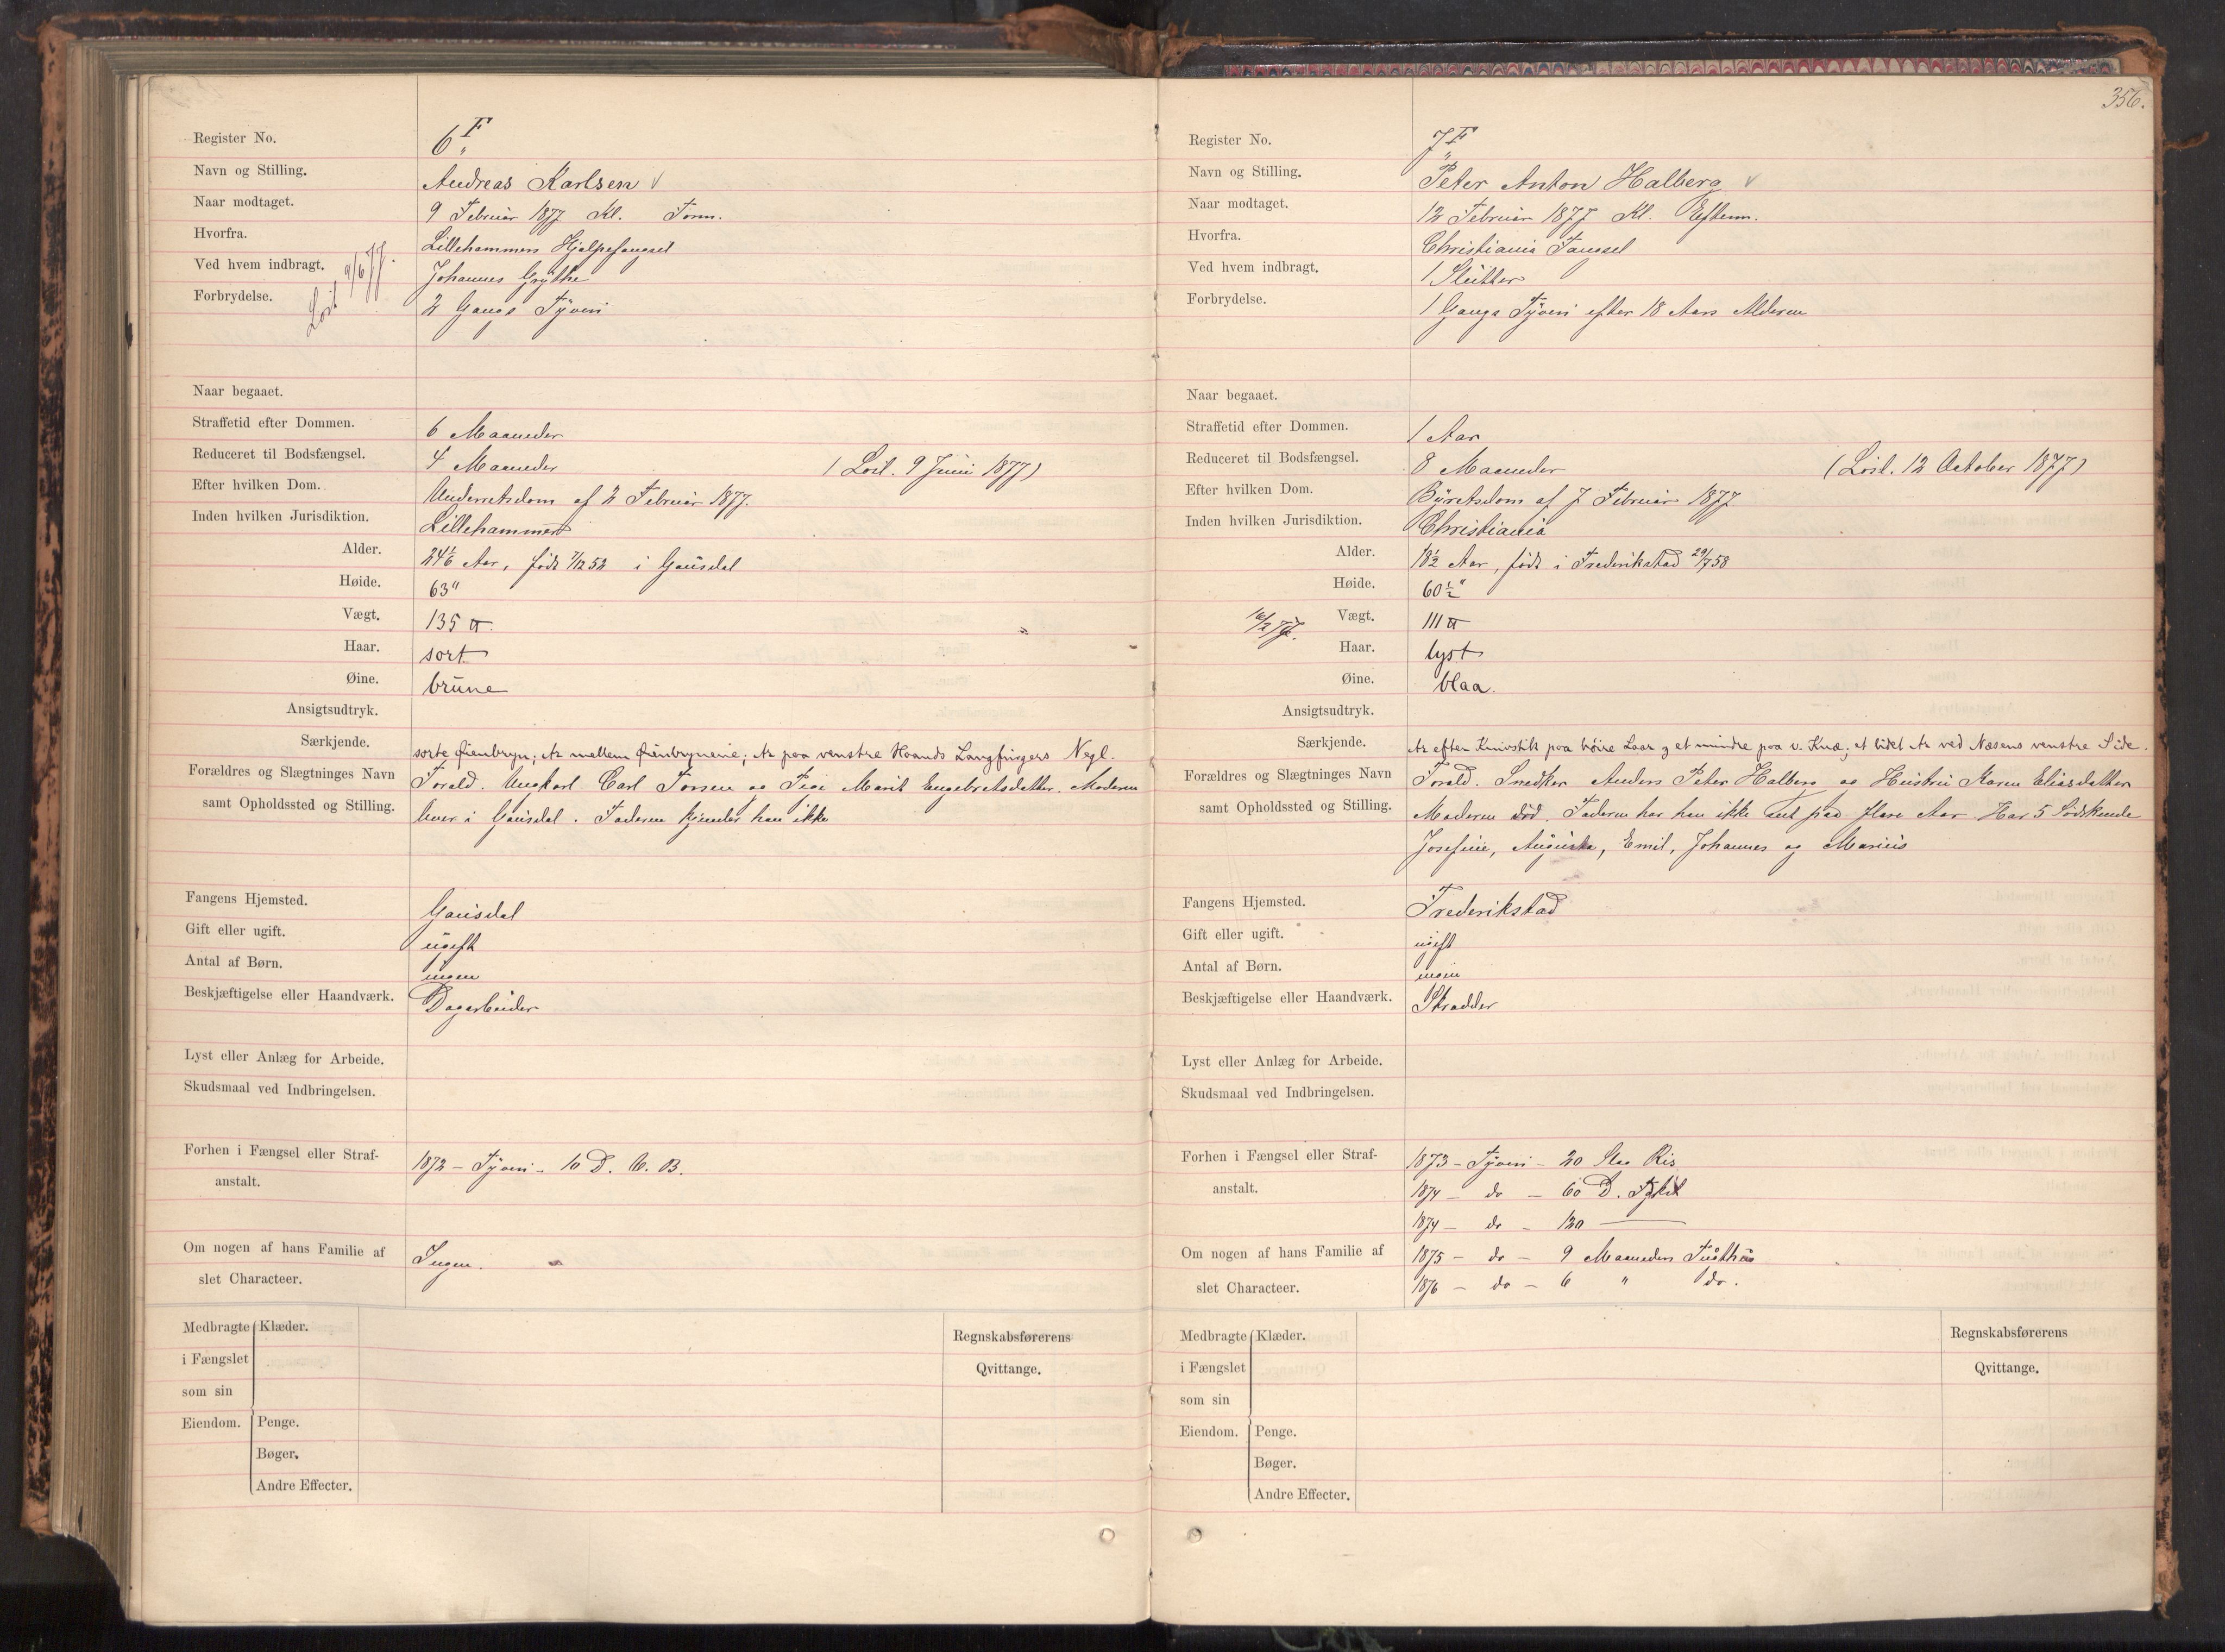 Register No. 6 F
Navn og Stilling. Andreas Karlsen
Naar modtaget. 9 Februar 1877 Kl. Form.
Hvorfra. Lillehammers Hjælpefængsel
Ved hvem indbragt. Johannes
Forbrydelse. 2 Gangs Tyveri
Løsl 9/6 77.
Naar begaaet.
Straffetid efter Dommen. 6 Maaneder
Reduceret til Bodsfængsel. 4 Maaneder (Løsl. 9 Juni 1877)
Efter hvilken Dom. Underretsdom af 2 Februar 1877.
Inden hvilken Jurisdiktion. Lillehammer
Alder. 24 1/6 Aar, født 7/12 52 i Gausdal
Høide. 63"
Vægt. 135 ℔.
Haar. sort
Øine. brune
Ansigtsudtryk.
Særkjende. sorte Øienbryn; Ar mellem Øienbrynene; Ar paa venstre Haands Langfingers Negl.
Forældres og Slægtninges Navn Forald. Ungkarl Carl Torsen og Pige Marit Engebretsdatter. Moderen
samt Opholdssted og Stilling. lever i Gausdal. Faderen kjender han ikke
Fangens Hjemsted. Gausdal
Gift eller ugift. ugift
Antal af Børn. ingen
Beskjæftigelse eller Haandværk. Dagarbeider
Lyst eller Anlæg for Arbeide.
Skudsmaal ved Indbringelsen.
Forhen i Fængsel eller Straf- 1872 – Tyveri – 10 D. V. B.
anstalt.
Om nogen af hans Familie af Ingen.
slet Characteer.
Medbragte Klæder.
i Fængslet
som sin
Eiendom. Penge.
Bøger.
Andre Effecter.
Regnskabsførerens
Qvittange.
356.
Register No. 7 F
Navn og Stilling. Peter Anton Halberg
Naar modtaget. 12 Februar 1877 Kl. Efterm.
Hvorfra. Christiania Fængsel
Ved hvem indbragt. 1 Slutter
Forbrydelse. 1 Gangs Tyveri efter 18 Aars Alderen
Naar begaaet.
Straffetid efter Dommen. 1 Aar
Reduceret til Bodsfængsel. 8 Maaneder (Løsl. 12 October 1877)
Efter hvilken Dom. Byretsdom af 7 Februar 1877
Inden hvilken Jurisdiktion. Christiania
Alder. 18 1/2 Aar, født i Frederikstad 29/7 58
Høide. 60 1/2"
Vægt. 111 ℔
Haar. lyst
Øine. blaa.
Ansigtsudtryk.
Særkjende. Ar efter Knivstik paa høire Laar og et mindre paa v. Knæ; et lidet Ar ved Næsens venstre Side.
Forældres og Slægtninges Navn Forald. Snedker Anders Peter Halberg og Hustru Karen Eliasdatter
samt Opholdssted og Stilling. Moderen død. Faderen har han ikke seet paa flere Aar. Har 5 Sødskende
Josefine, Augusta, Emil, Johannes og Marius
Fangens Hjemsted. Frederikstad
Gift eller ugift. ugift
Antal af Børn. ingen
Beskjæftigelse eller Haandværk. Skradder
Lyst eller Anlæg for Arbeide.
Skudsmaal ved Indbringelsen.
Forhen i Fængsel eller Straf- 1873 – Tyveri – 20 Slag Ris
anstalt. 1874 – do – 60 D.
1874 – do – 120 —
Om nogen af hans Familie af 1875 – do – 9 Maaneders Tugthus
slet Characteer. 1876 – do – 6 " do.
Medbragte Klæder.
i Fængslet
som sin
Eiendom. Penge.
Bøger.
Andre Effecter.
Regnskabsførerens
Qvittange.